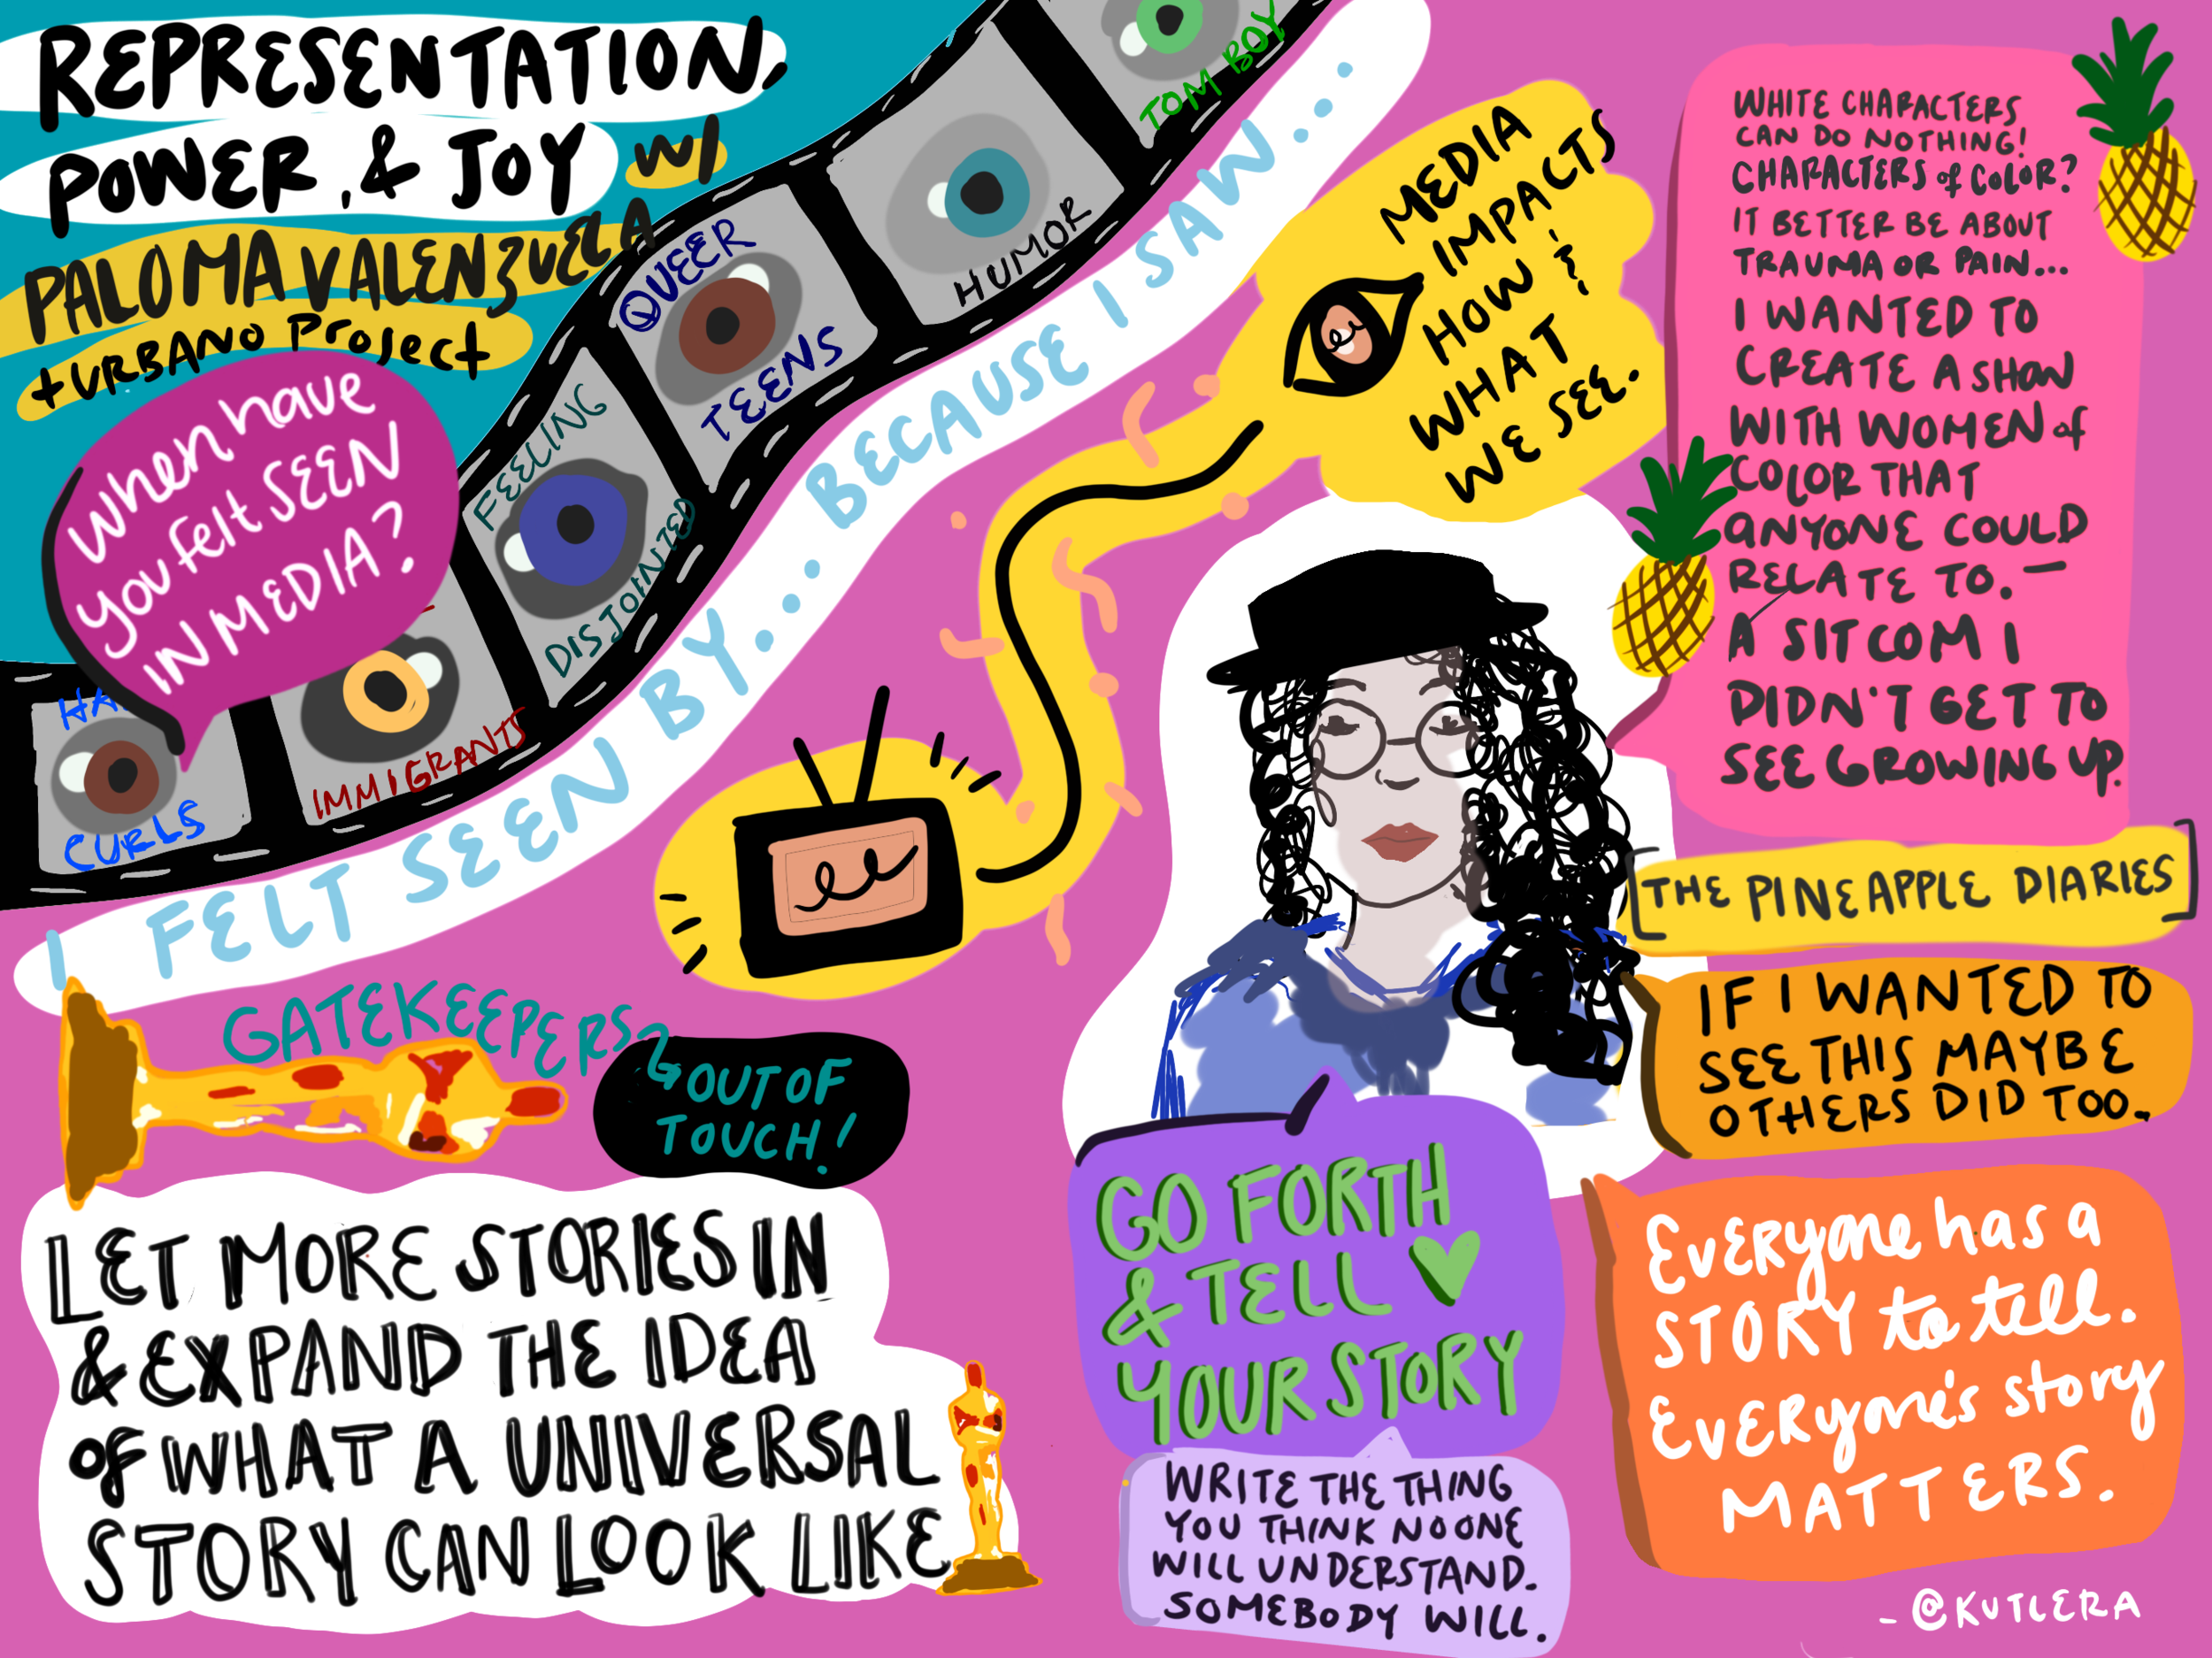 REPRESENTATION,
POWER, & JOY w/
PALOMA VALENZUELA
+ URBANO PROJECT
When have
you felt SEEN
IN MEDIA?
CURLS
IMMIGRANTS
FEELING
DISJOINTED
QUEER
TEENS
HUMOR
TOM BOY
I FELT SEEN BY... BECAUSE I SAW...
MEDIA
IMPACTS
HOW &
WHAT
WE SEE.
WHITE CHARACTERS
CAN DO NOTHING!
CHARACTERS of COLOR?
IT BETTER BE ABOUT
TRAUMA OR PAIN...
I WANTED TO
CREATE A SHOW
WITH WOMEN of
COLOR THAT
ANYONE COULD
RELATE TO. —
A SITCOM I
DIDN'T GET TO
SEE GROWING UP.
[THE PINEAPPLE DIARIES]
IF I WANTED TO
SEE THIS MAYBE
OTHERS DID TOO.
GATEKEEPERS
OUT OF
TOUCH!
LET MORE STORIES IN
& EXPAND THE IDEA
OF WHAT A UNIVERSAL
STORY CAN LOOK LIKE
GO FORTH
& TELL
YOUR STORY
WRITE THE THING
YOU THINK NO ONE
WILL UNDERSTAND.
SOMEBODY WILL.
EVERyone has a
STORY to tell.
EVERyone's story
MATTERS.
- @KUTLERA